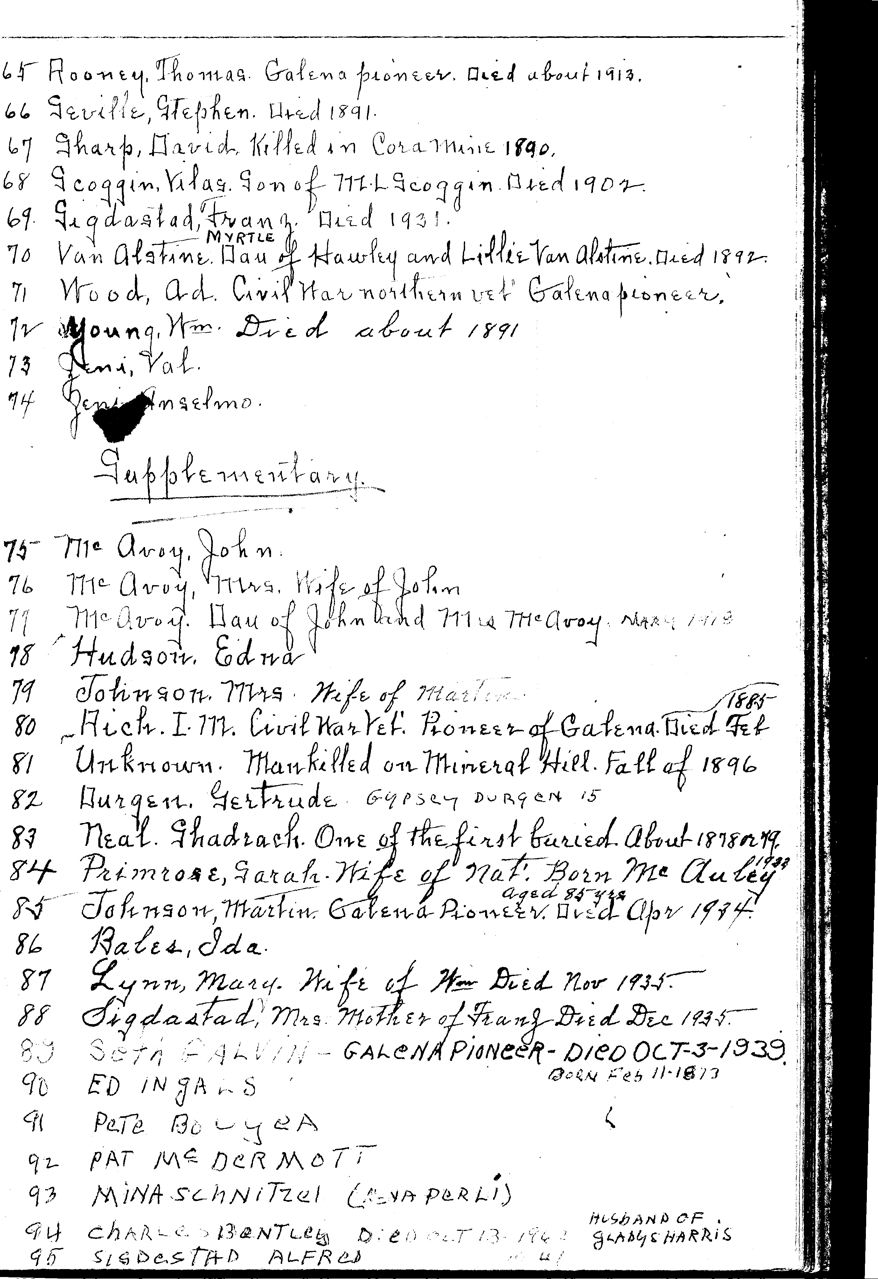 65 Rooney, Thomas. Galena pioneer. Died about 1913.
66 Seville, Stephen. Died 1891.
67 Sharp, David. Killed in Cora Mine 1890.
68 Scoggin, Vilas. Son of M.L Scoggin. Died 1902.
69. Sigdastad, Franz. Died 1931.
MYRTLE
70 Van Alstine. Dau of Hawley and Lillie Van Alstine. Died 1892.
71 Wood, Ad. Civil War northern vet. Galena pioneer.
72 Young, Wm. Died about 1891
73 Zeni, Val.
74 Zeni, Anselmo.
Supplementary.
75 Mc Avoy, John.
76 Mc Avoy, Mrs. Wife of John
77 Mc Avoy. Dau of John and Mrs McAvoy.
78 Hudson. Edna
79 Johnson. Mrs. Wife of Martin
1885
80 Hich. I. M. Civil War Vet. Pioneer of Galena. Died Feb
81 Unknown. Man killed on Mineral Hill. Fall of 1896
82 Durgen. Gertrude. GYPSEY DURGEN 15
83 Neal. Shadrach. One of the first buried. About 1878 or 79.
84 Primrose, Sarah. Wife of Nat. Born Mc Auley 1933
aged 85 yrs
85 Johnson, Martin. Galena Pioneer. Died Apr 1934.
86 Bales, Ida.
87 Lynn, Mary. Wife of Wm Died Nov 1935.
88 Sigdastad, Mrs. Mother of Franz Died Dec 1935.
89 SETH GALVIN - GALENA PIONEER - DIED OCT-3-1939.
BORN Feb 11-1873
90 ED INgALS
91 PeTe BouyeA
92 PAT Mc DERMOTT
93 MINA SchNITZel ( PERLI)
HUSBAND OF
94 CHARLes BeNTLey DIED OCT 13 GLADYS HARRIS
95 SIGDESTAD ALFRED